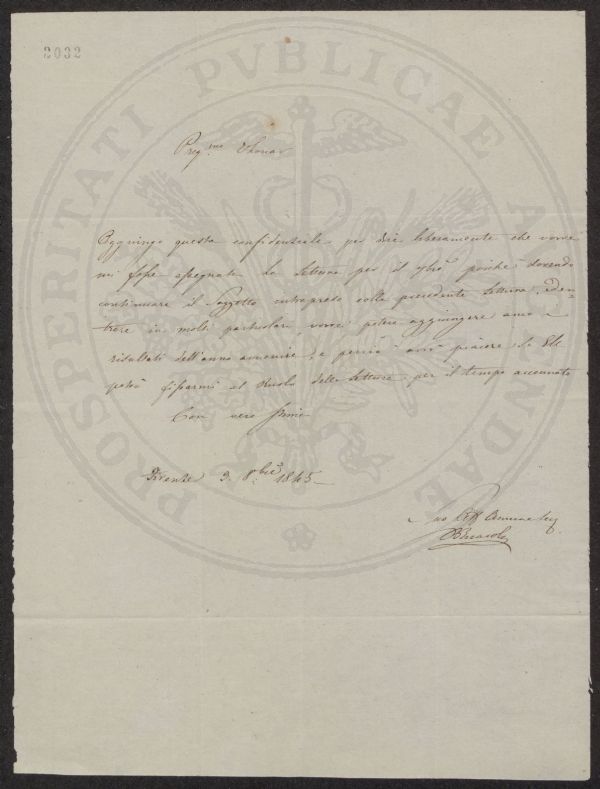 2032
PROSPERITATI PVBLICAE AVGENDAE
Preg.mo
Aggiungo questa confidenziale per dire liberamente che vorrei
mi fosse assegnata la lettura per il poiché dovendo
continuare il soggetto intrapreso colla precedente lettura, ed en-
trare in molti particolari, vorrei potere aggiungere anco i
risultati dell'anno avvenire, e perciò avrò piacere se Ella
potrà fissarmi al Ruolo delle letture per il tempo accennato
Con vera stima
Firenze 3. 8bre 1845
Suo